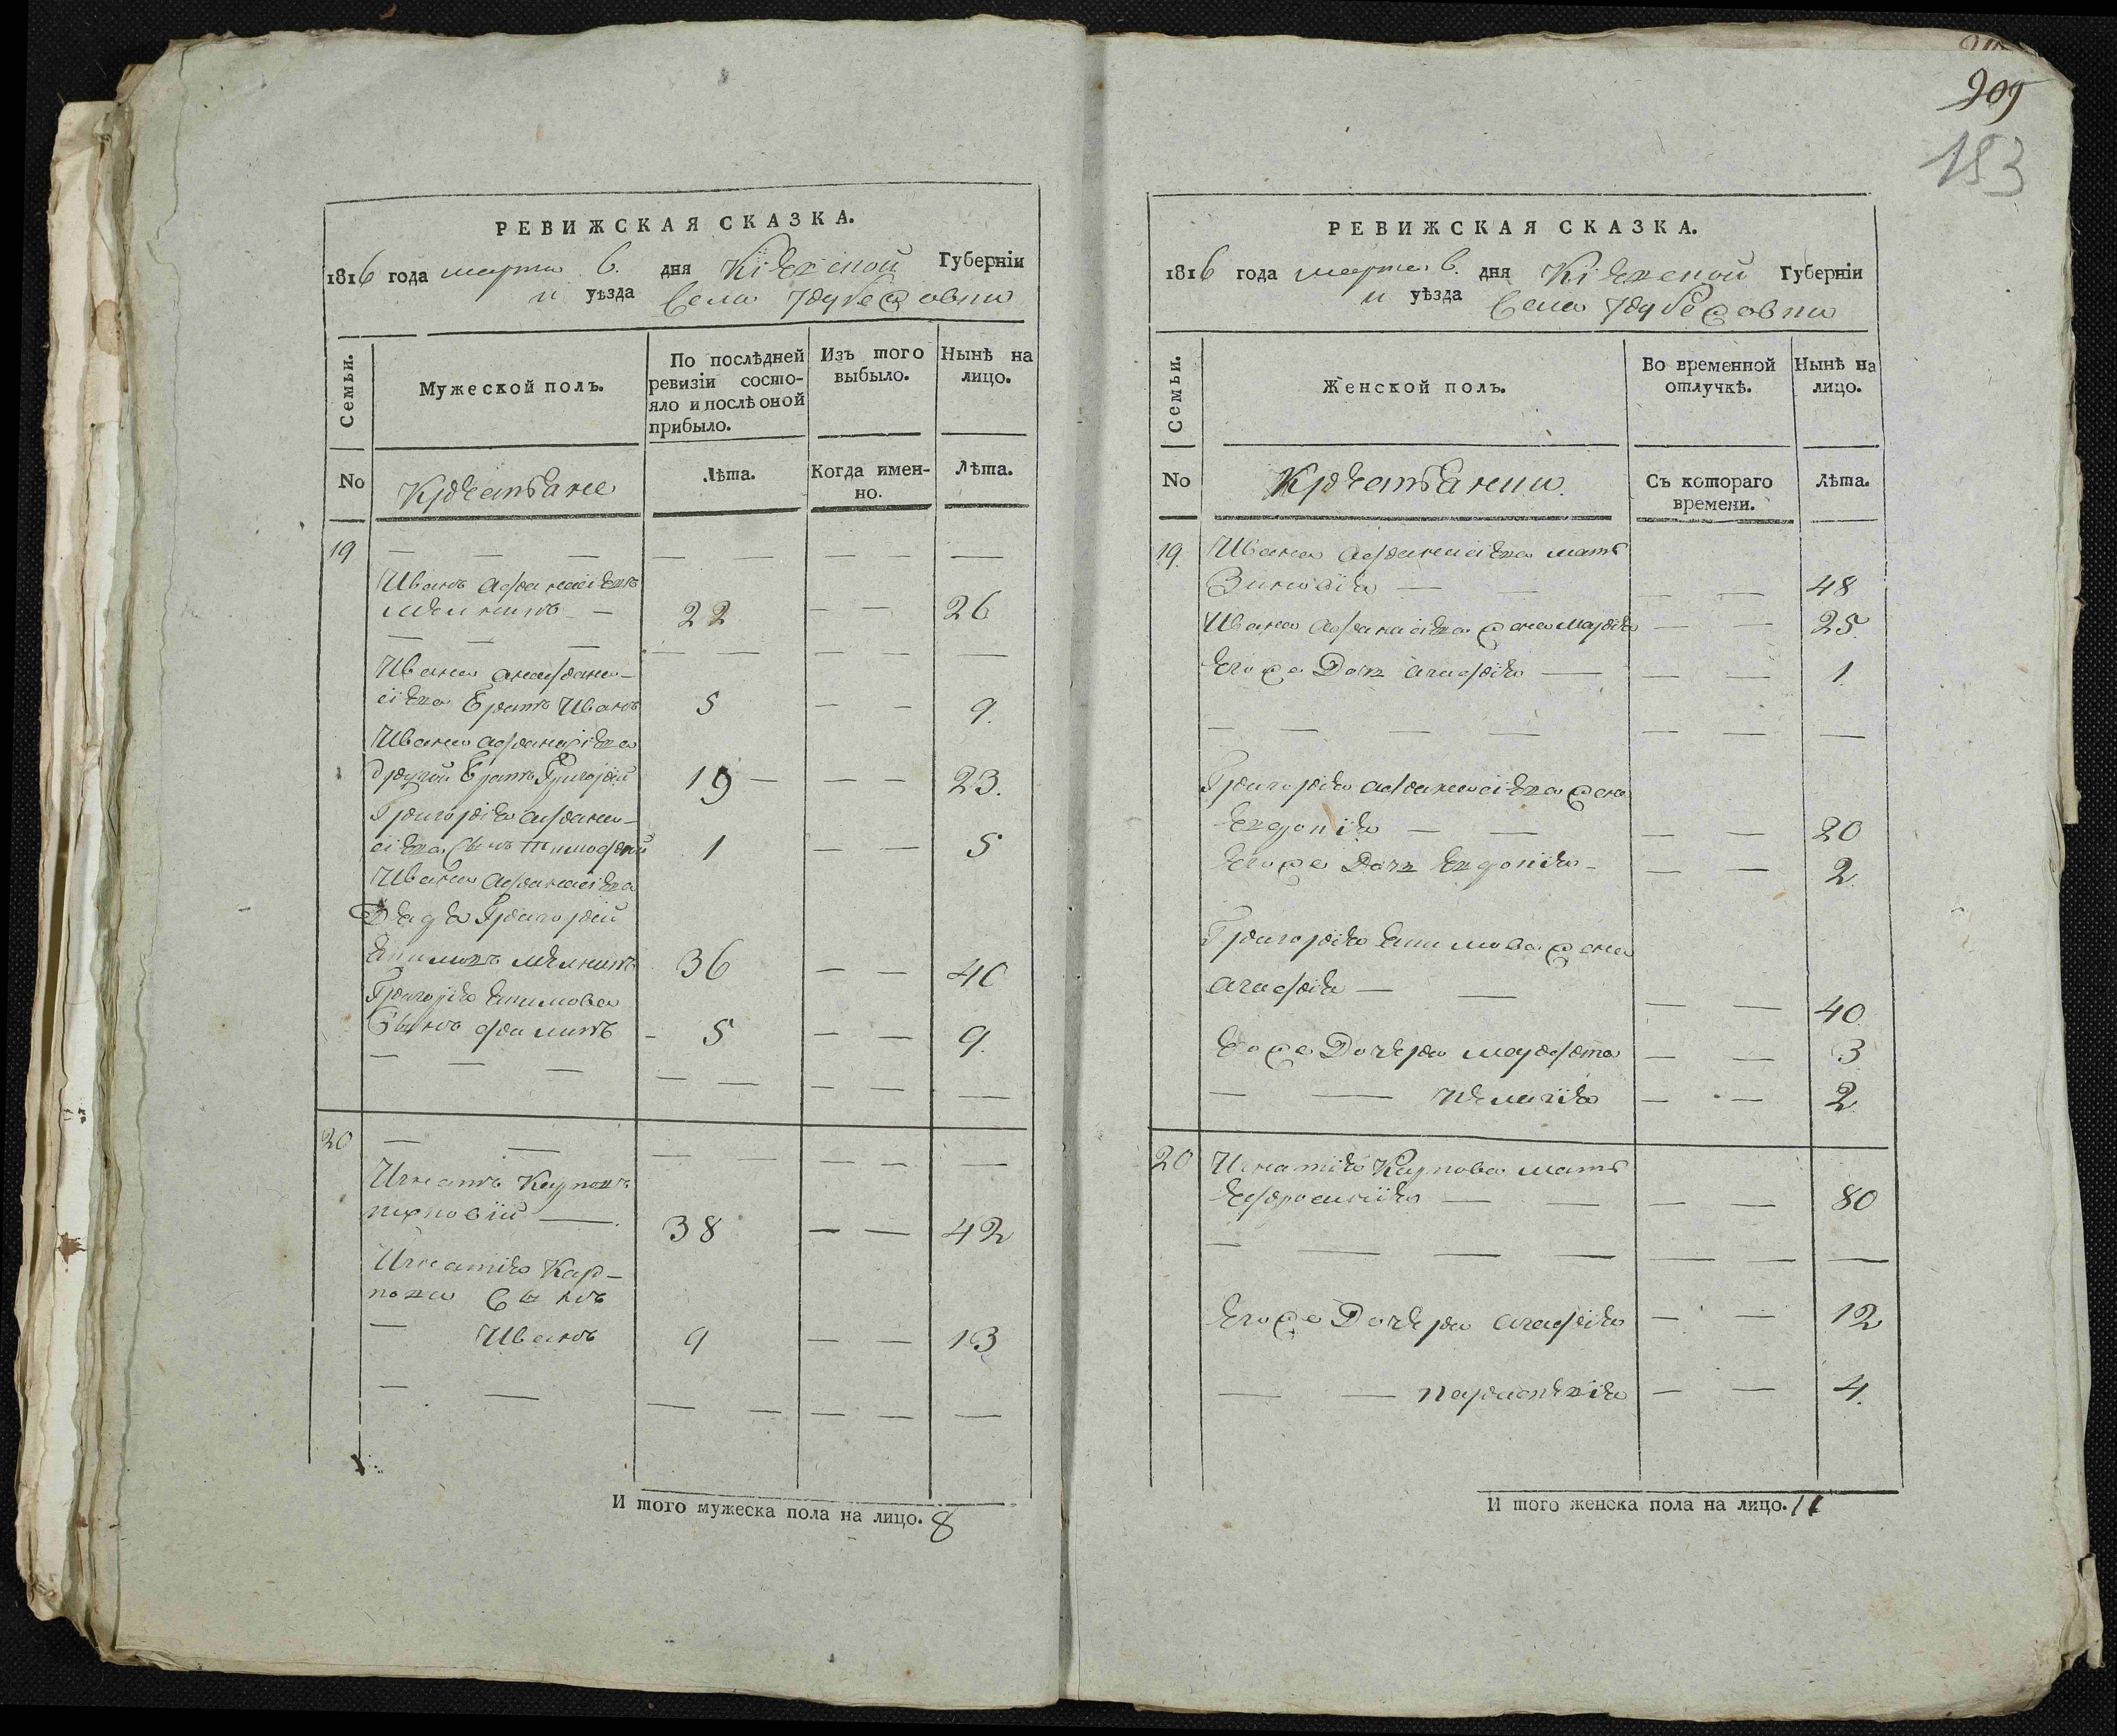 905
153
РЕВИЖСКАЯ СКАЗКА.
1816 года марта 6. дня Кіевской Губерніи
и уѣзда Села
Семьи.
Мужеской полъ.
По послѣдней ревизіи состо-
яло и послѣ оной
прибыло.
Изъ того выбыло.
Нынѣ на лицо.
No
Крестьяне
Лѣта.
Когда имен-
но.
Лѣта.
19 — — — — — — — —
Иванъ Афанасіевъ
Мелникъ — 22 — — 26
— — — — — — — —
Ивана Анафана-
сіева Братъ Иванъ 5 — — 9.
Ивана Афанасіева
другой Братъ Григорій 19 — — — 23.
Григорія Афана-
сіева Сынъ Тимофей 1 — — 5
Ивана Афанасіева
Дядя Григорій
Екимовъ Мелникъ 36 — — 40
Григорія Екимова
Сынъ — 5 — — 9.
— — — — — — — —
20 — — — — — — —
Игнатъ Карповъ
38 — — 42
Игнатія Кар-
пова Сынъ
— Иванъ 9 — — 13
— — — — — — —
И того мужеска пола на лицо. 8
РЕВИЖСКАЯ СКАЗКА.
1816 года марта 6. дня Кіевской Губерніи
и уѣзда Села
Семьи.
Женской полъ.
Во временной отлучкѣ.
Нынѣ на лицо.
No
Крестьянки.
Съ котораго времени.
Лѣта.
19. Ивана Афанасіева мать
Зиновія — — — — 48
Ивана Афанасіева жена Марія — — 25.
Егоже Доч Агафія — — — 1.
— — — — — — —
Григорія Афанасіева жена
Евдокія — — — — 20
Егоже Доч Евдокія — — — 2.
Григорія Екимова жена
Агафія — — — — 40.
Егоже Дочеря Марфа — — 3.
— — Пелагія — — 2.
20 Игнатія Карпова мать
Ефросинія — — — — 80
— — — — — — —
Егоже Дочеря Агафія — — 12
— — Параскевія — — 4.
И того женска пола на лицо. 11